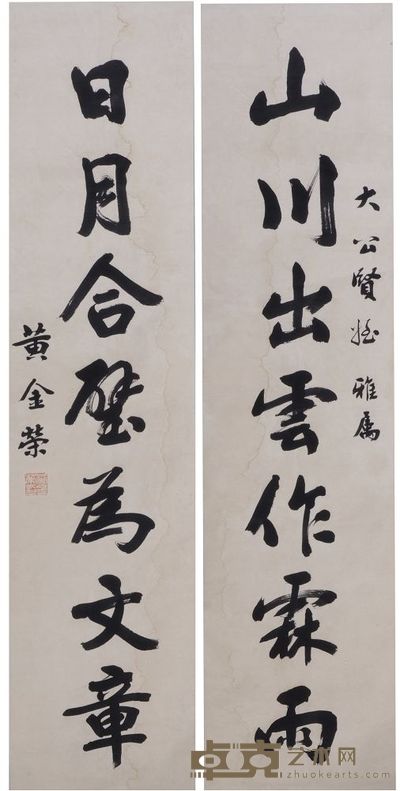 山川出雲作霖雨
大公賢 雅属
日月合璧為文章
黃金榮
卓克艺术网
zhuokearts.com